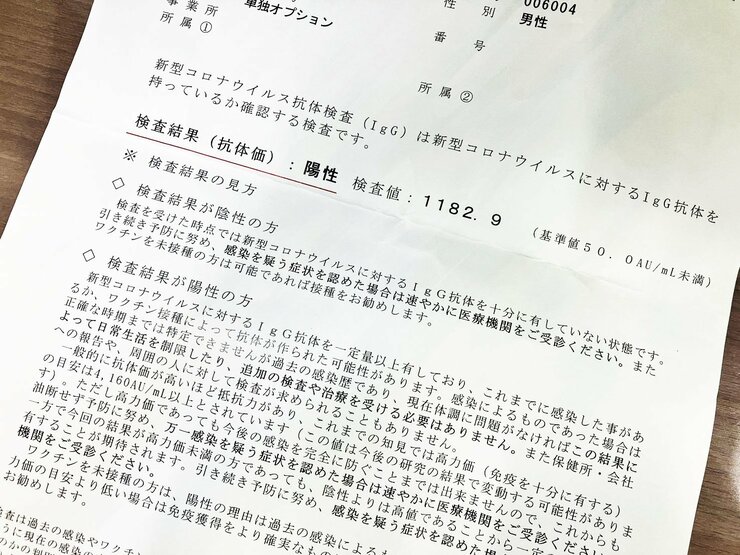 事業所　単独オプション
所属①
性別　男性
006004
番号
所属②
新型コロナウイルス抗体検査（IgG）は新型コロナウイルスに対するIgG抗体を
持っているか確認する検査です。
検査結果（抗体価）：陽性　検査値：1182.9　（基準値50.0AU/mL未満）
※ 検査結果の見方
◇ 検査結果が陰性の方
検査を受けた時点では新型コロナウイルスに対するIgG抗体を十分に有していない状態です。
引き続き予防に努め、感染を疑う症状を認めた場合は速やかに医療機関をご受診ください。また
ワクチンを未接種の方は可能であれば接種をお勧めします。
◇ 検査結果が陽性の方
新型コロナウイルスに対するIgG抗体を一定量以上有しており、これまでに感染した事があ
るか、ワクチン接種によって抗体が作られた可能性があります。感染によるものであった場合は
正確な時期までは特定できませんが過去の感染歴であり、現在体調に問題がなければこの結果に
よって日常生活を制限したり、追加の検査や治療を受ける必要はありません。また保健所・会社
への報告や、周囲の人に対して検査が求められることもありません。
一般的に抗体価が高いほど抵抗力があり、これまでの知見では高力価（免疫を十分に有する）
の目安は4,160AU/mL以上とされています（この値は今後の研究の結果で変動する可能性がありま
す）。ただし高力価であっても今後の感染を完全に防ぐことまでは出来ませんので、これからも
油断せず予防に努め、万一感染を疑う症状を認めた場合は速やかに医療機関をご受診ください。
一方で今回の結果が高力価未満の方であっても、陰性よりは高値であることから一定
有することが期待されます。引き続き予防に努め、感染を疑う症状を認めた場合
機関をご受診ください。
ワクチンを未接種の方は、陽性の理由は過去の感染によるも
力価の目安より低い場合は免疫獲得をより確実なもの
お勧めします。
検査は過去の感染やワクチン
うに現在の感染の
のかの判